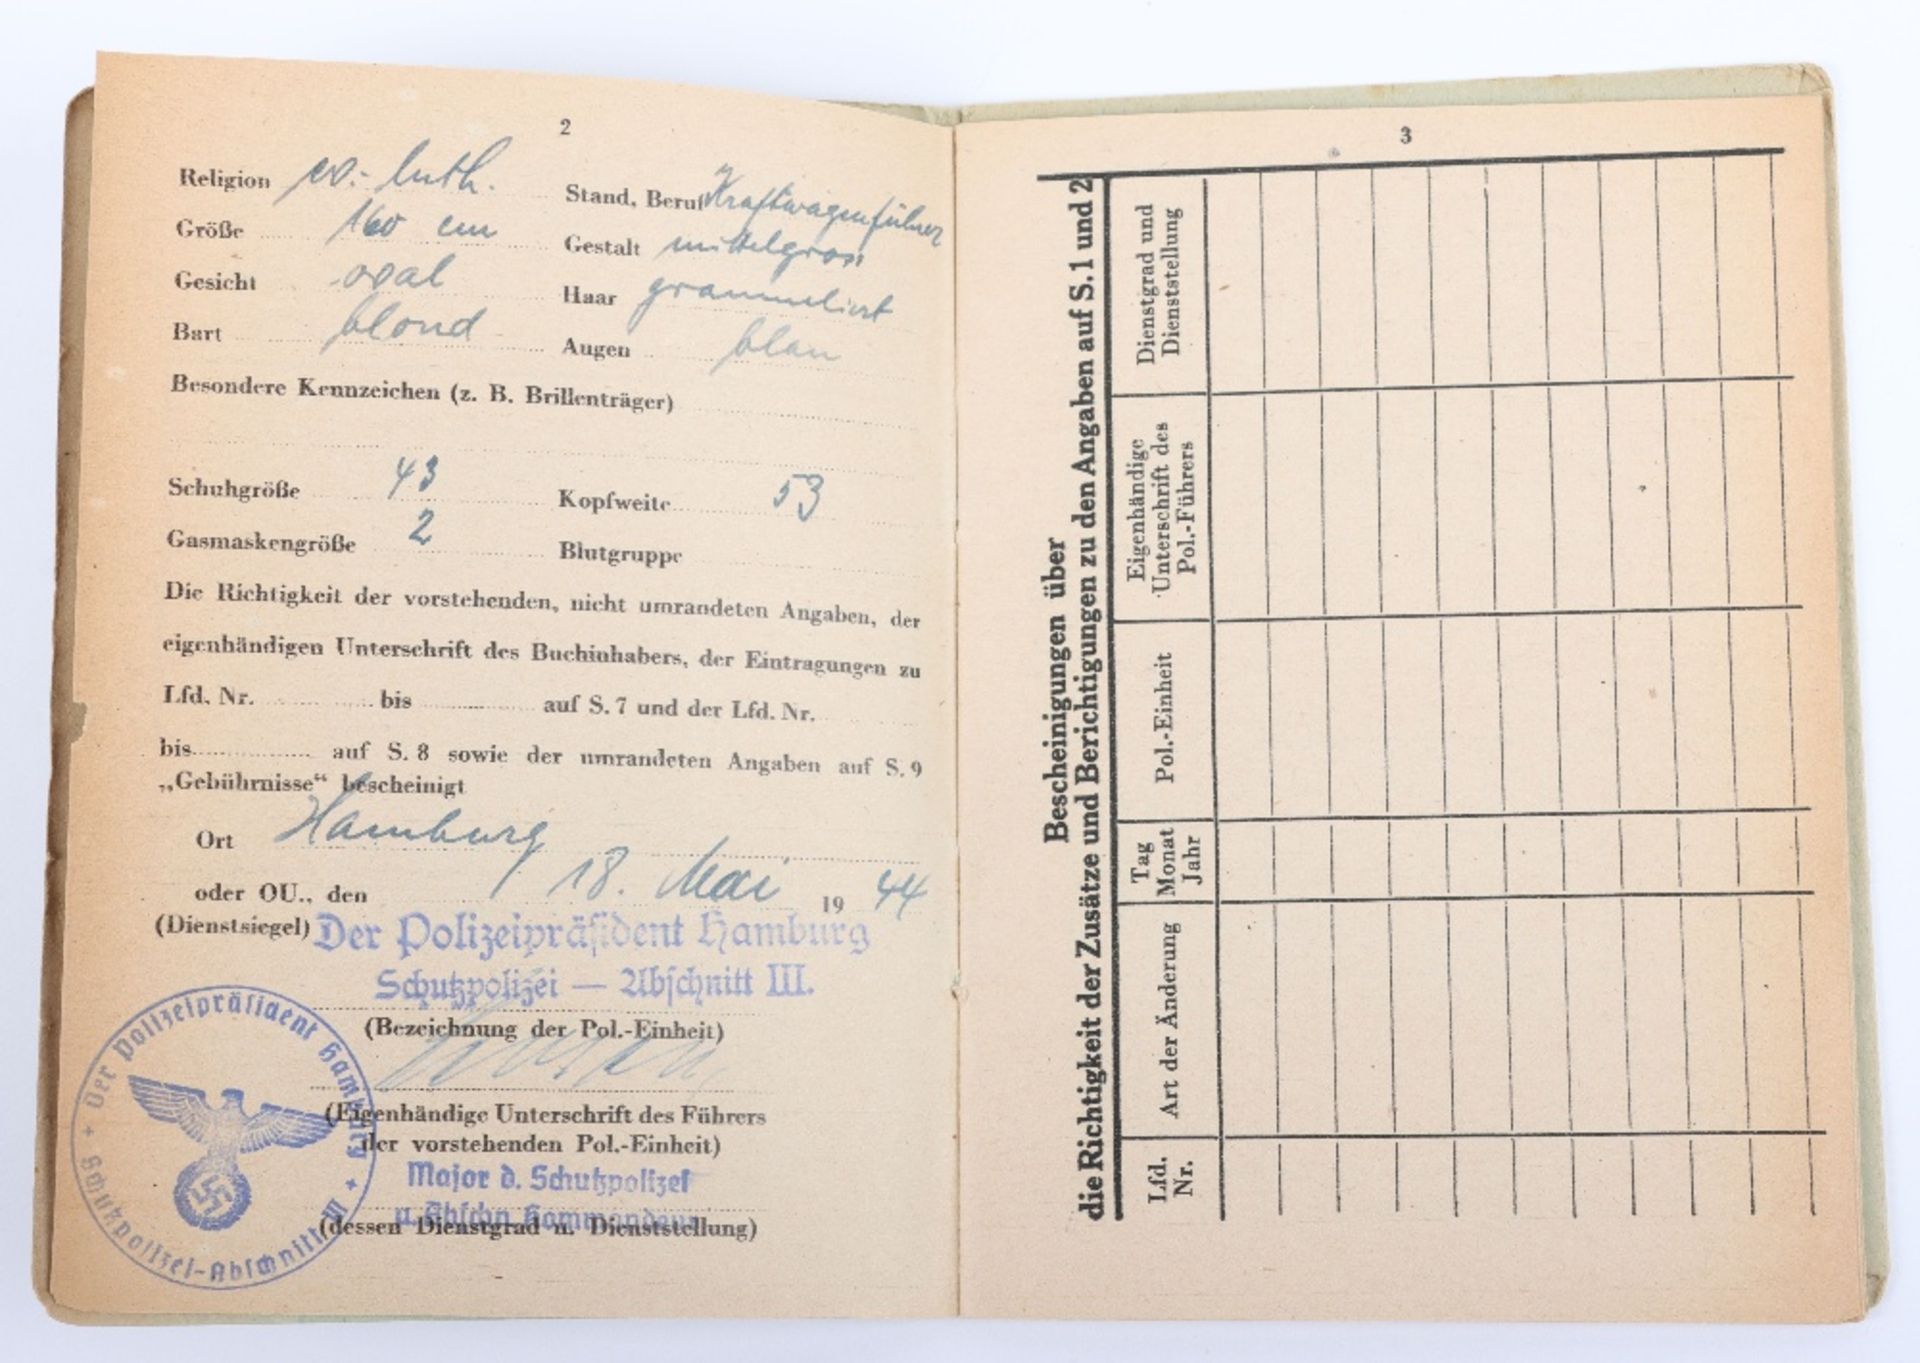 2
Religion ev.-luth. Stand, Beruf Kraftwagenführer
Größe 160 cm Gestalt mittelgross
Gesicht oval Haar grammeliert
Bart blond Augen blau
Besondere Kennzeichen (z. B. Brillenträger)
Schuhgröße 43 Kopfweite 53
Gasmaskengröße 2 Blutgruppe
Die Richtigkeit der vorstehenden, nicht umrandeten Angaben, der
eigenhändigen Unterschrift des Buchinhabers, der Eintragungen zu
Lfd. Nr. bis auf S. 7 und der Lfd. Nr.
bis auf S. 8 sowie der umrandeten Angaben auf S. 9
„Gebührnisse“ bescheinigt
Ort Hamburg
oder OU., den 18. Mai 19 44
(Dienstsiegel) Der Polizeipräsident Hamburg
Schutzpolizei — Abschnitt III.
(Bezeichnung der Pol.-Einheit)
(Eigenhändige Unterschrift des Führers
der vorstehenden Pol.-Einheit)
Major d. Schutzpolizei
u. Abschn. Kommandeur
(dessen Dienstgrad u. Dienststellung)
Der Polizeipräsident Hamburg
Schutzpolizei-Abschnitt III
3
Bescheinigungen über
die Richtigkeit der Zusätze und Berichtigungen zu den Angaben auf S. 1 und 2
Lfd. Nr.
Art der Änderung
Tag Monat Jahr
Pol.-Einheit
Eigenhändige Unterschrift des Pol.-Führers
Dienstgrad und Dienststellung